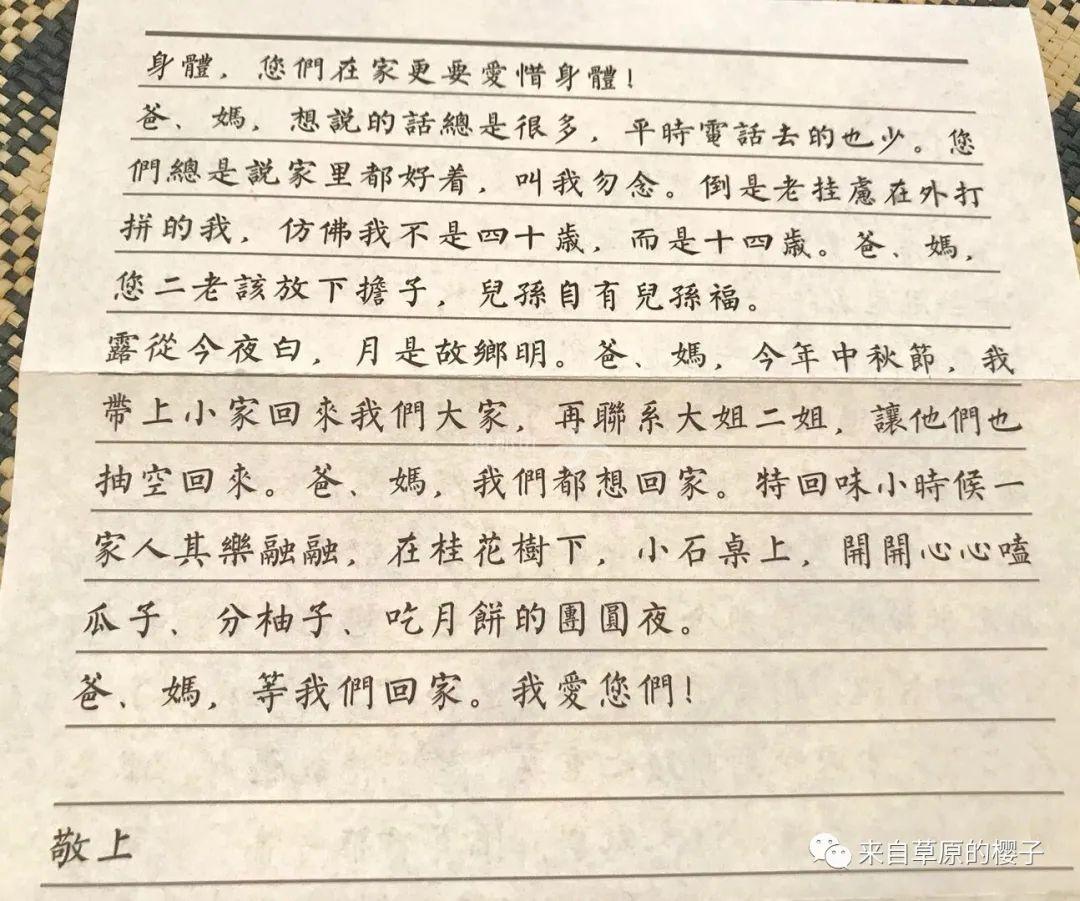 身體，您們在家更要愛惜身體！
爸、媽，想説的話總是很多，平時電話去的也少。您
們總是説家里都好着，叫我勿念。倒是老挂慮在外打
拼的我，仿佛我不是四十歲，而是十四歲。爸、媽，
您二老該放下擔子，兒孫自有兒孫福。
露從今夜白，月是故鄉明。爸、媽，今年中秋節，我
帶上小家回來我們大家，再聯系大姐二姐，讓他們也
抽空回來。爸、媽，我們都想回家。特回味小時候一
家人其樂融融，在桂花樹下，小石桌上，開開心心嗑
瓜子、分柚子、吃月餅的團圓夜。
爸、媽，等我們回家。我愛您們！
敬上
来自草原的樱子